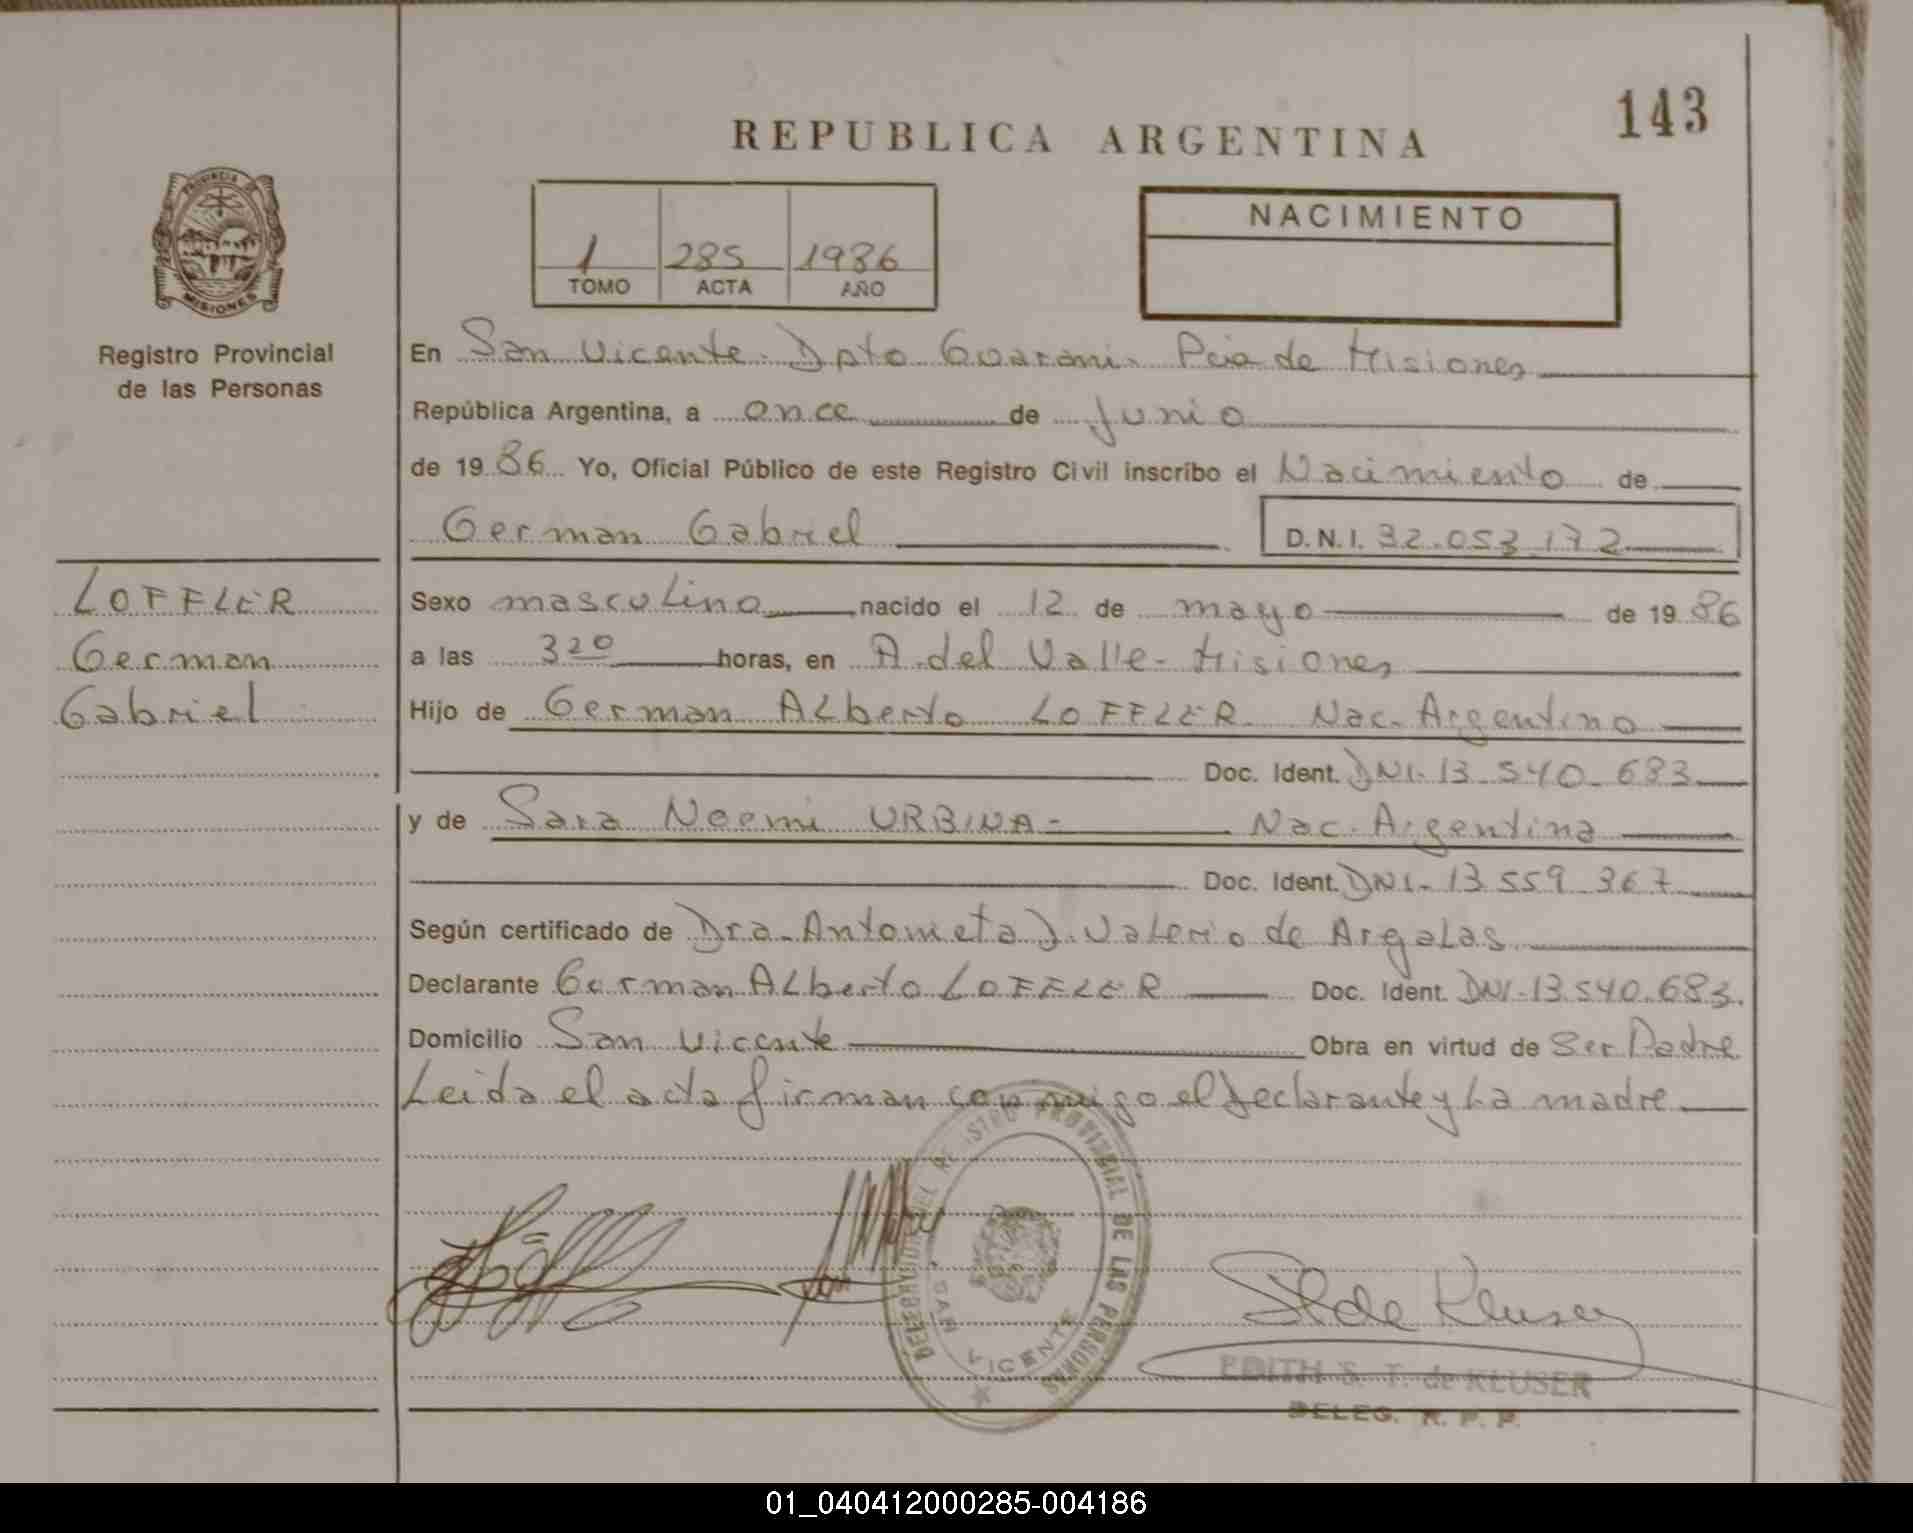 143
REPUBLICA ARGENTINA
PROVINCIA DE
MISIONES
Registro Provincial
de las Personas
1 285 1986
TOMO ACTA AÑO
NACIMIENTO
En San Vicente. Dpto Guarani. Pcia de Misiones
República Argentina, a once de Junio
de 1986 Yo, Oficial Público de este Registro Civil inscribo el Nacimiento de
German Gabriel D.N.I. 32.053.172
LOFFLER
German
Gabriel
Sexo masculino nacido el 12 de mayo de 1986
a las 3 20 horas, en A. del Valle - Misiones
Hijo de German ALberto LOFFLER Nac. Argentino
Doc. Ident. DNI. 13.540.683
y de Sara Noemi URBINA - Nac. Argentina
Doc. Ident. DNI. 13.559.367
Según certificado de Dra. Antonieta J. Valerio de Argalas
Declarante German ALberto LOFFLER Doc. Ident. DNI. 13.540.683.
Domicilio San Vicente Obra en virtud de Ser Padre
Leida el acta firman conmigo el declarante y La madre
DELEGACION DEL REGISTRO PROVINCIAL DE LAS PERSONAS
SAN VICENTE
S T de Kluser
EDITH S. T. de KLUSER
DELEG. R. P. P.
01_040412000285-004186